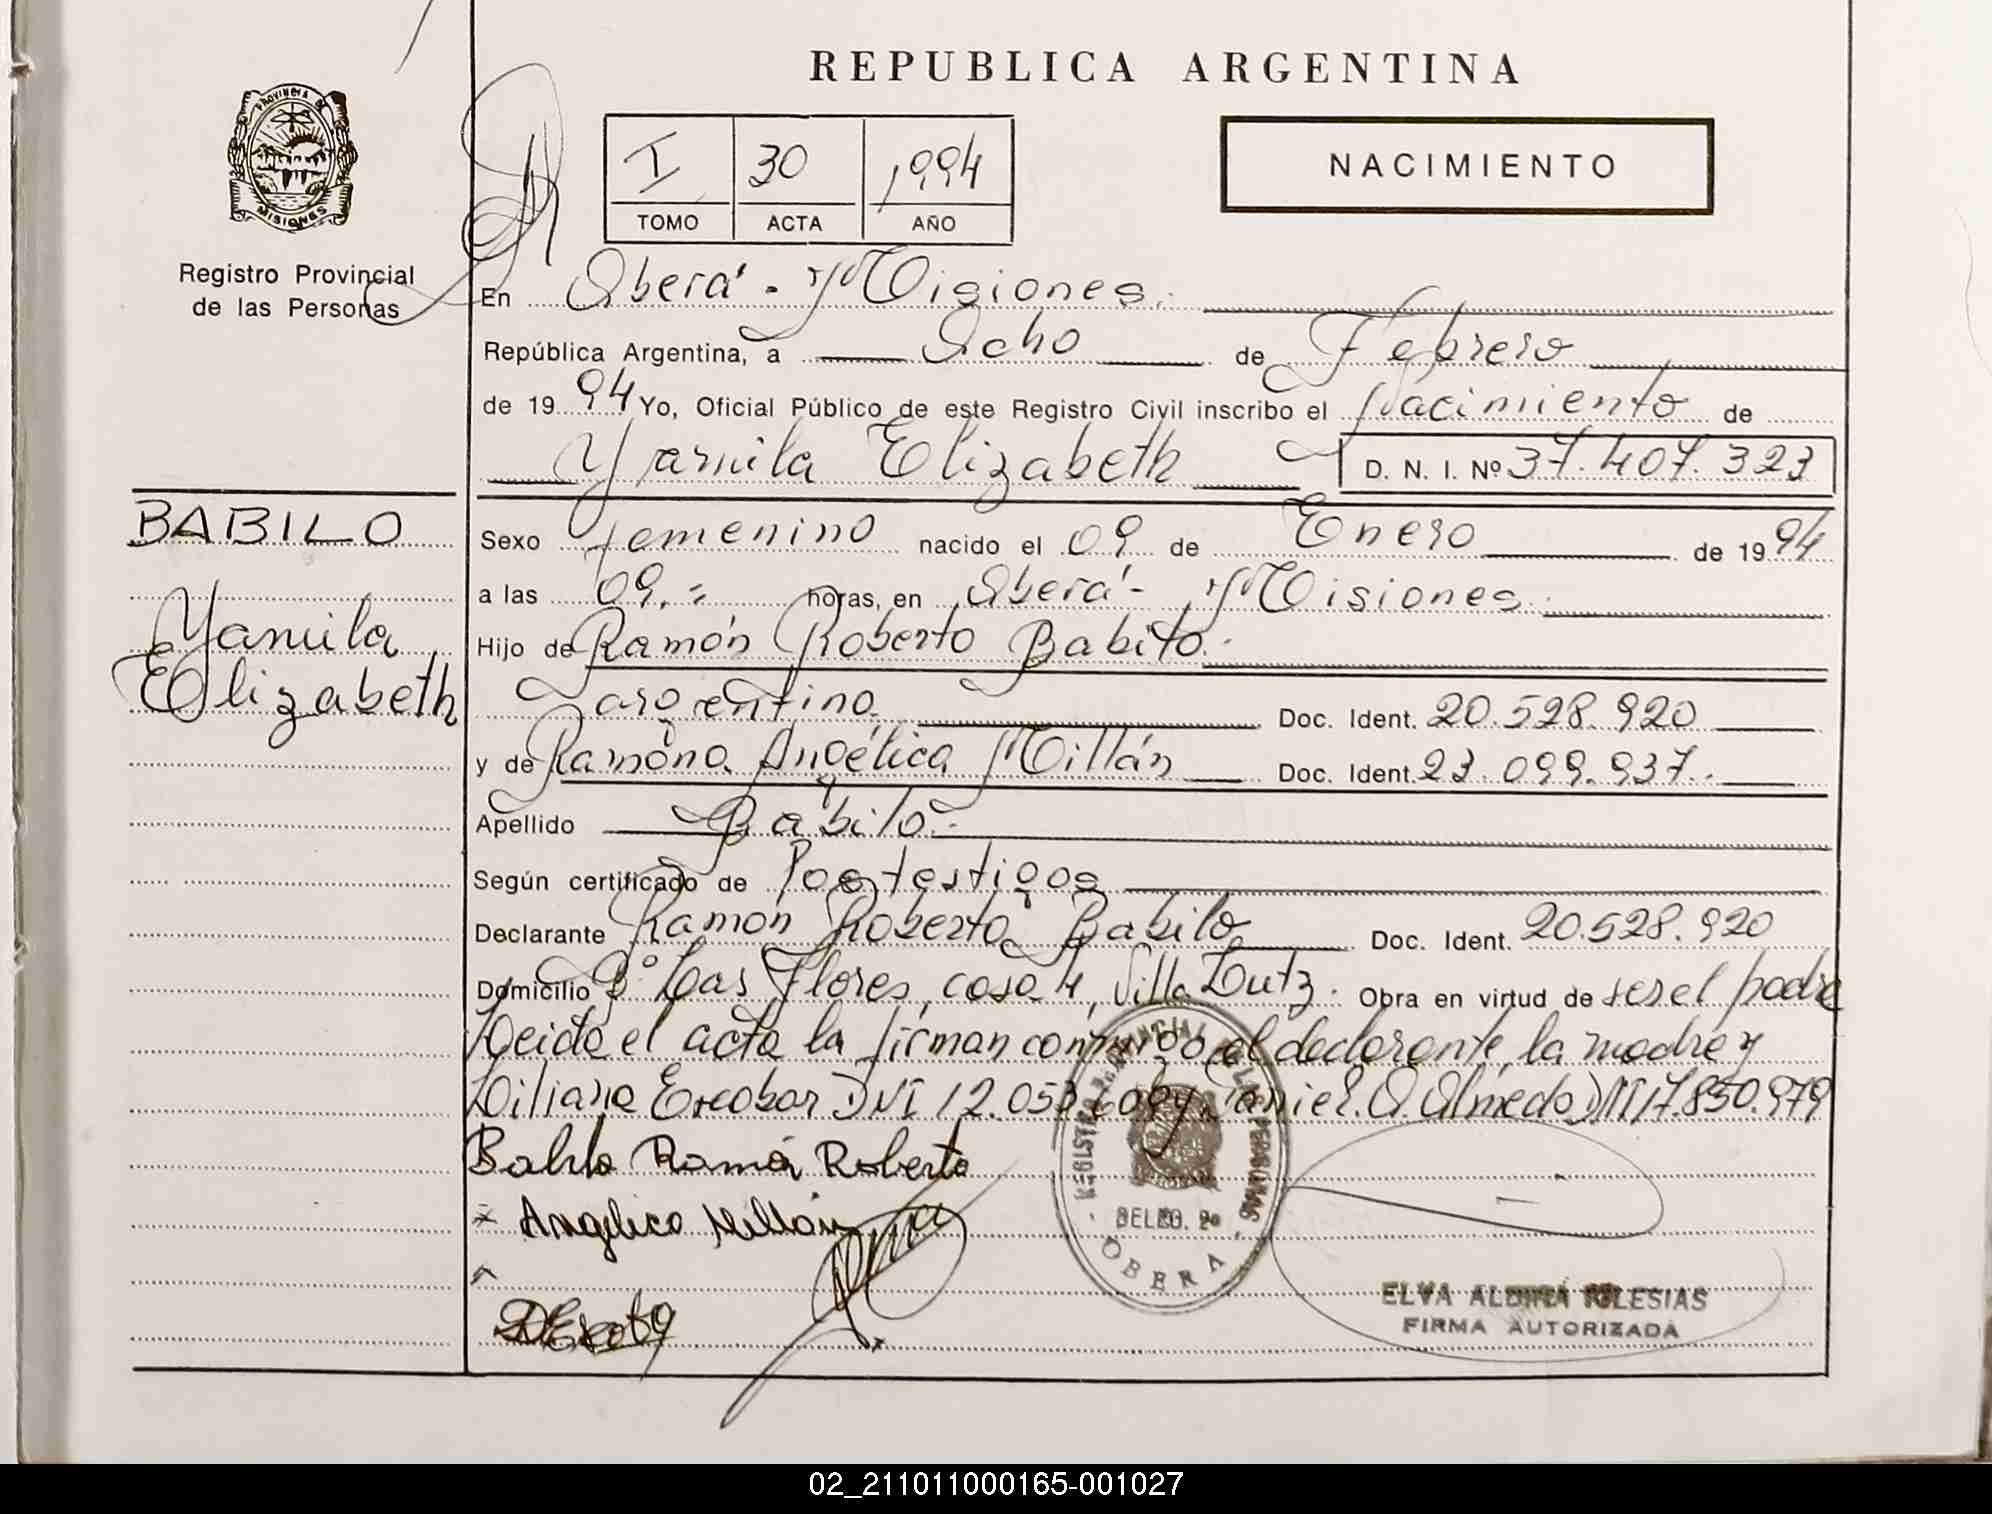 REPUBLICA ARGENTINA
PROVINCIA DE MISIONES
Registro Provincial
de las Personas
I 30 1994
TOMO ACTA AÑO
NACIMIENTO
En Oberá - Misiones.
República Argentina, a Ocho de Febrero
de 1994 Yo, Oficial Público de este Registro Civil inscribo el Nacimiento de
Yamila Elizabeth D. N. I. Nº 37.407.323
BABILO
Yamila
Elizabeth
Sexo femenino nacido el 09 de Enero de 1994
a las 09.= horas, en Oberá - Misiones.
Hijo de Ramón Roberto Babilo.
argentino Doc. Ident. 20.528.920
y de Ramona Angélica Millán Doc. Ident. 23.099.937.
Apellido Babilo.-
Según certificado de Por testigos
Declarante Ramón Roberto Babilo Doc. Ident. 20.528.920
Domicilio Bº Las Flores, casa 4, Villa Lutz. Obra en virtud de ser el padre
Leida el acta la firman conmigo el declarante, la madre y
Liliana Escobar DNI 12.053. y Daniel O. Olmedo DNI 17.850.979
Babilo Ramón Roberto
x Angelica Millán
REGISTRO PROVINCIAL DE LAS PERSONAS
DELEG. 2ª
- OBERA -
ELVA ALBINA IGLESIAS
FIRMA AUTORIZADA
02_211011000165-001027